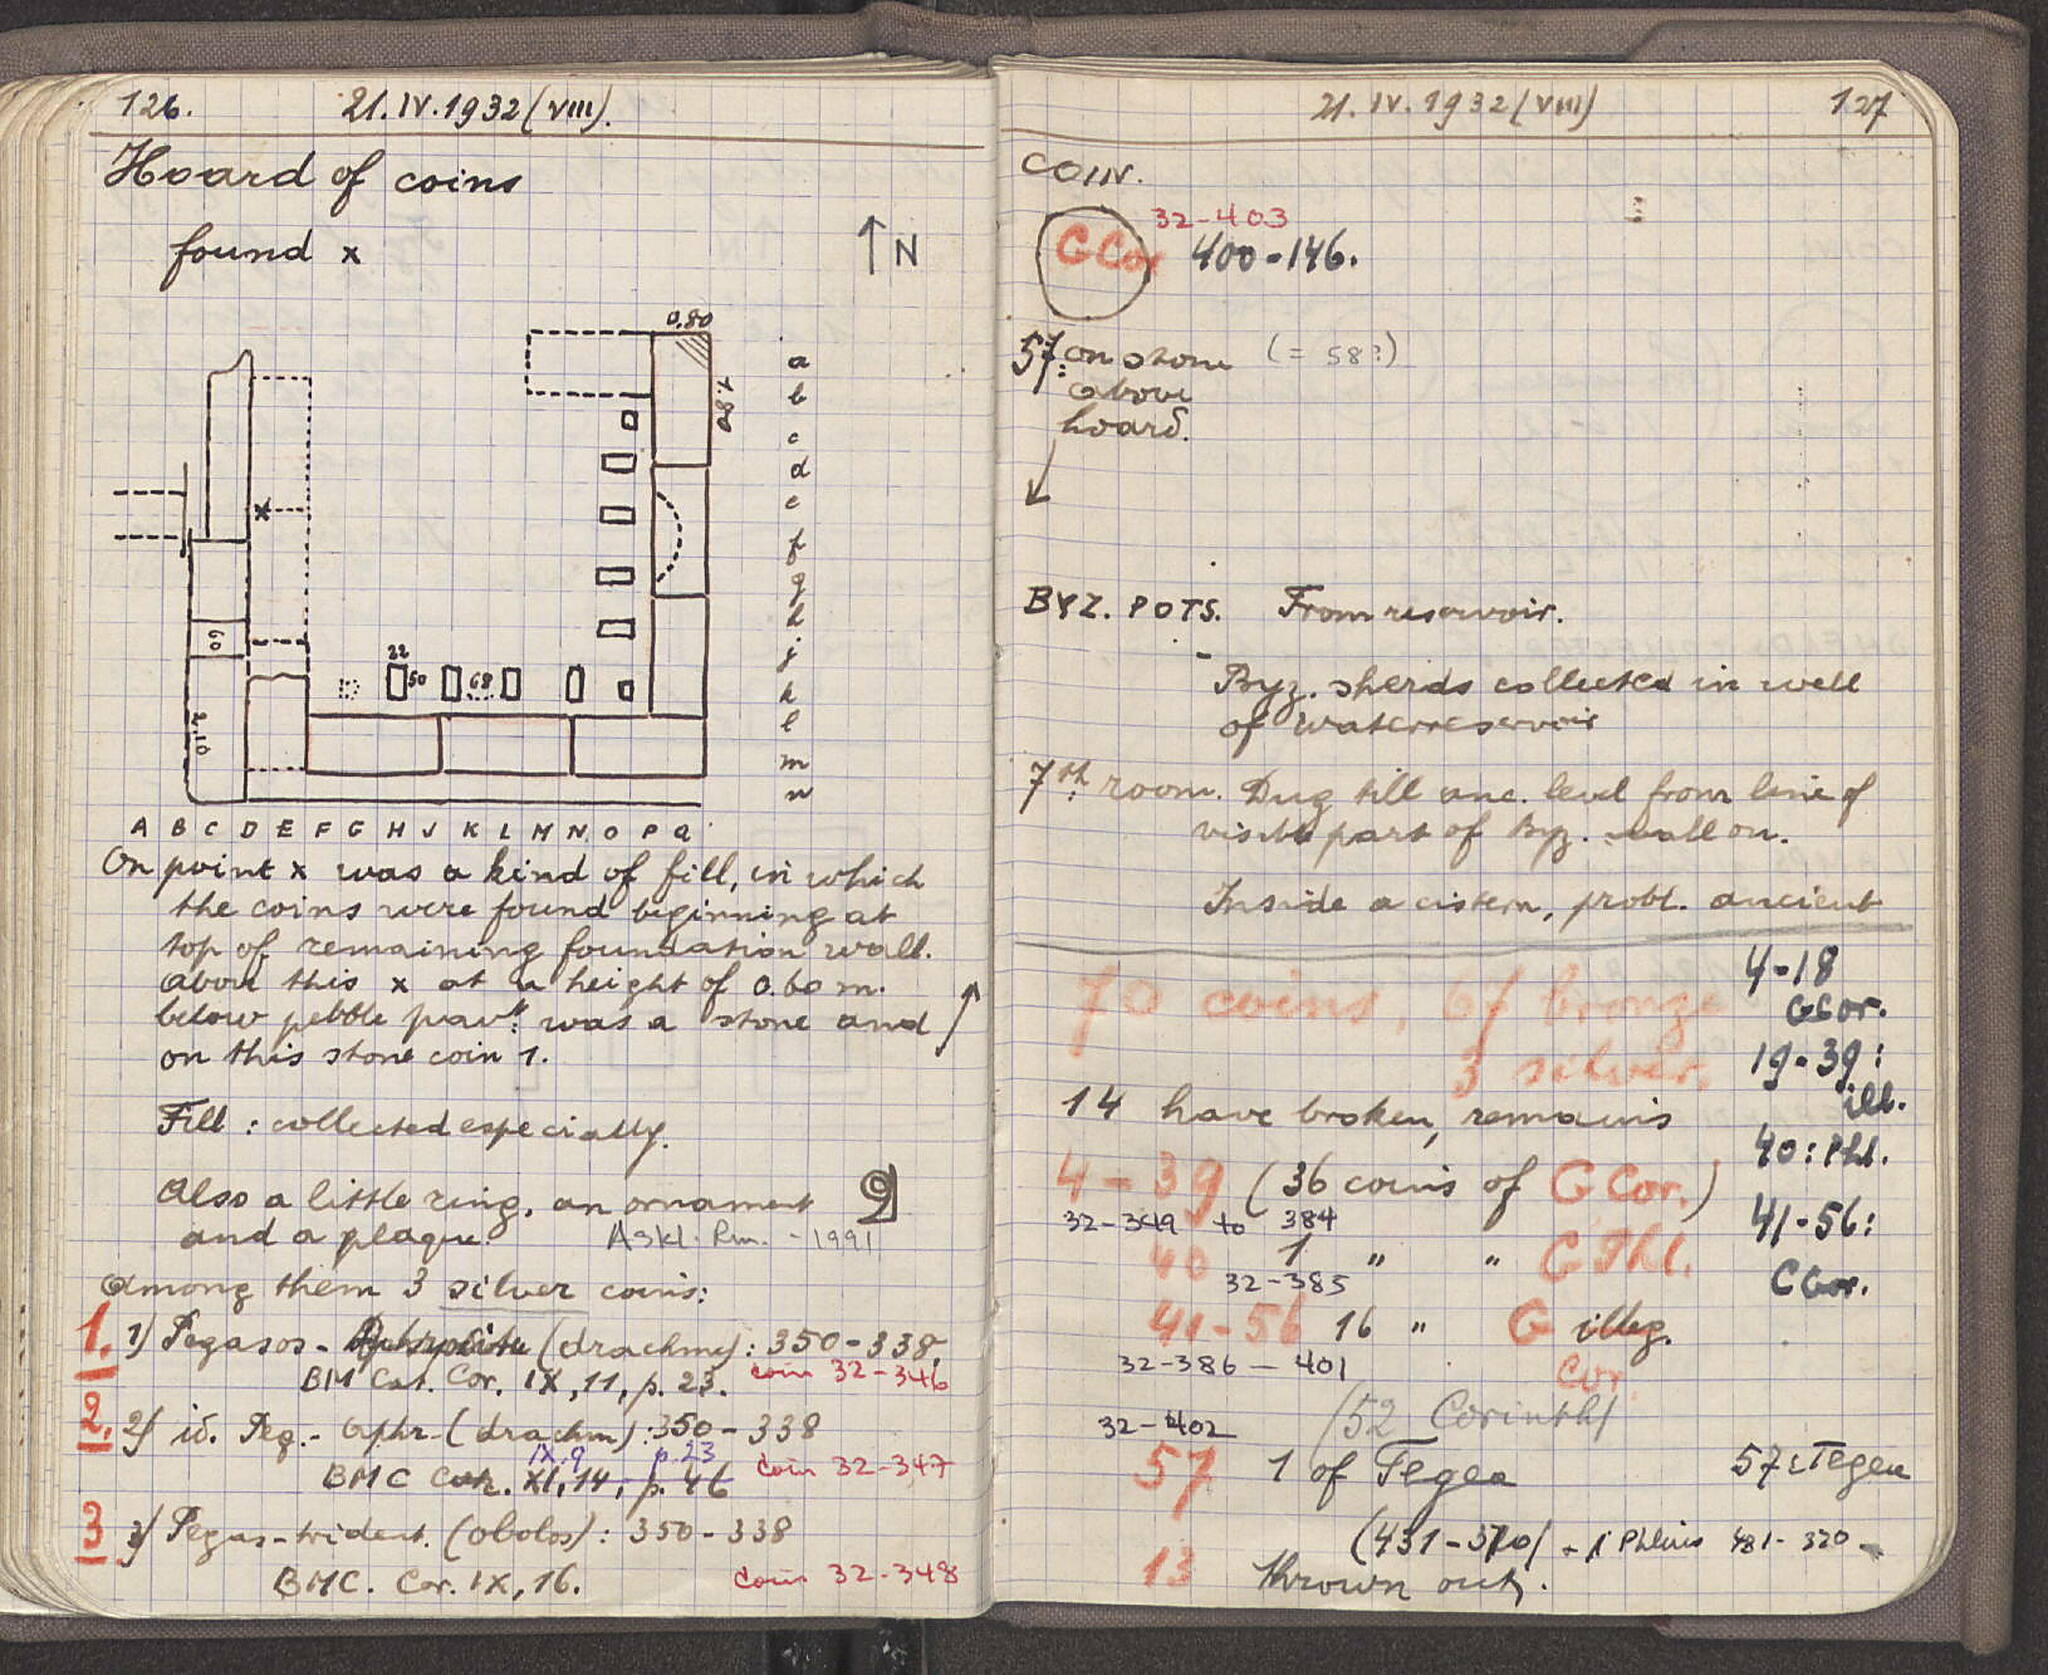 126. 21.IV.1932 (VIII).
Hoard of coins
found x
N
0.80
1.80
a
b
c
d
e
f
g
h
j
k
l
m
n
x
60
2.10
22
50
68
A B C D E F G H J K L M N O P Q
On point x was a kind of fill, in which
the coins were found beginning at
top of remaining foundation wall.
Above this x at a height of 0.60 m.
below pebble pavt. was a stone and
on this stone coin 1.
Fill : collected especially.
Also a little ring, an ornament
and a plaque. Askl. Rm. - 1991
Among them 3 silver coins:
1. 1) Pegasos - (drachme) : 350-338,
BM Cat. Cor. IX, 11, p. 23. coin 32-346
2. 2) id. Peg. - Aphr. (drachm) : 350-338
IX.9 p.23
BMC Cor. XI, 14, p. 46 coin 32-347
3 3) Pegas-trident. (obolos) : 350-338
BMC. Cor. IX, 16. coin 32-348
21.IV.1932 (VIII) 127
COIN.
32-403
G Cor 400-146.
57: on stone (= 58?)
above
hoard.
BYZ. POTS. From reservoir.
Byz. sherds collected in well
of waterreservoir
7th room. Dug till anc. level from line of
visible part of Byz. wall on.
Inside a cistern, probl. ancient
70 coins, 67 bronze
3 silver.
14 have broken, remains
4-39 (36 coins of G Cor.)
32-349 to 384
40 1 " " G Phl.
32-385
41-56 16 " G illeg.
32-386 - 401 Cor.
(52 Corinth)
32-402
57 1 of Tegea
(431-370) - 1 Phlius 431-370
13 thrown out.
4-18
GCor.
19-39:
ill.
40: Phl.
41-56:
G Cor.
57: Tegea